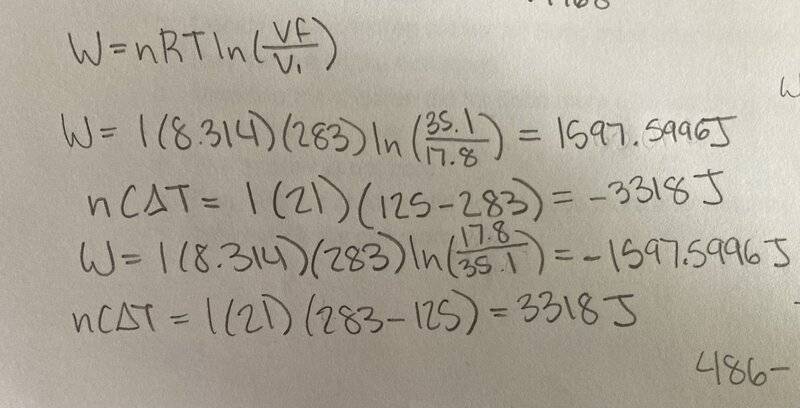 W=nRTln(VF/V₁)
W= 1(8.314)(283)ln(35.1/17.8) = 1597.5996J
nCΔT= 1(21)(125-283)= -3318J
W=1(8.314)(283)ln(17.8/35.1)=-1597.5996J
nCΔT = 1(21)(283-125)=3318J
486-